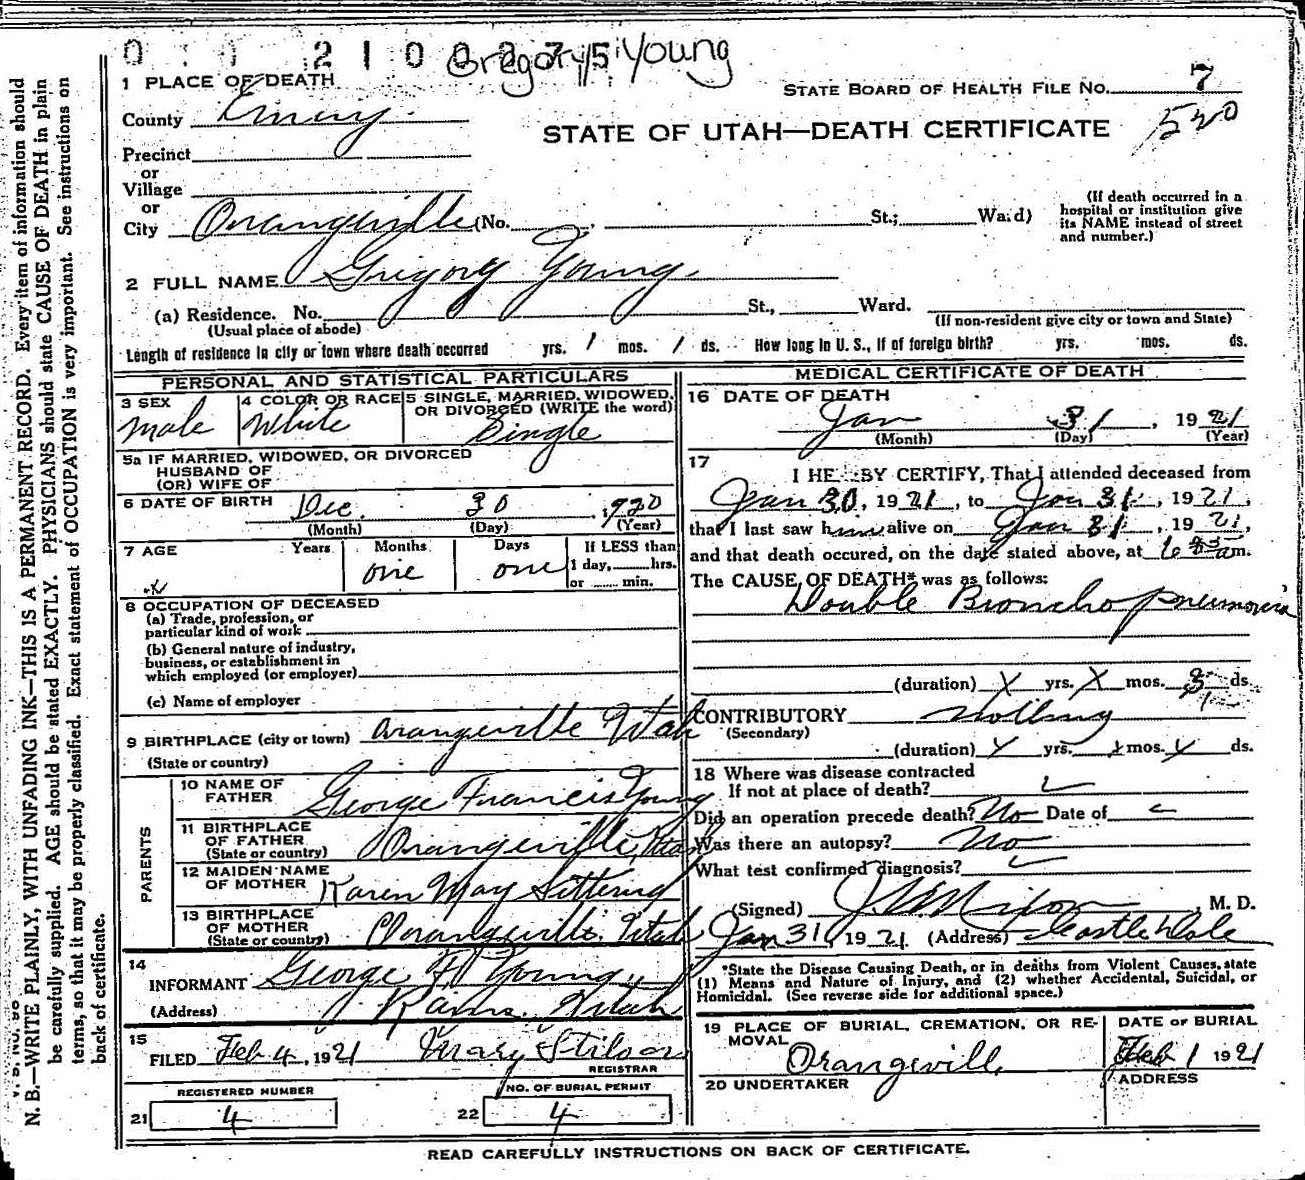 0 0 2100275
Gregory Young
1 PLACE OF DEATH
STATE BOARD OF HEALTH FILE NO. 7
520
County Emery
STATE OF UTAH—DEATH CERTIFICATE
Precinct
or
Village
or
City Orangeville (No. St.; Wa.d)
(If death occurred in a hospital or institution give its NAME instead of street and number.)
2 FULL NAME Gregory Young
(a) Residence. No. St., Ward.
(Usual place of abode)
(If non-resident give city or town and State)
Length of residence in city or town where death occurred yrs. 1 mos. 1 ds. How long in U. S., if of foreign birth? yrs. mos. ds.
PERSONAL AND STATISTICAL PARTICULARS
3 SEX
male
4 COLOR OR RACE
White
5 SINGLE, MARRIED, WIDOWED, OR DIVORCED (WRITE the word)
Single
5a IF MARRIED, WIDOWED, OR DIVORCED
HUSBAND OF
(OR) WIFE OF
6 DATE OF BIRTH Dec. 30 1920
(Month) (Day) (Year)
7 AGE
Years
Months
one
Days
one
If LESS than
1 day, hrs.
or min.
8 OCCUPATION OF DECEASED
(a) Trade, profession, or
particular kind of work
(b) General nature of industry,
business, or establishment in
which employed (or employer)
(c) Name of employer
9 BIRTHPLACE (city or town) Orangeville Utah
(State or country)
PARENTS
10 NAME OF
FATHER George Francis Young
11 BIRTHPLACE
OF FATHER Orangeville, Utah
(State or country)
12 MAIDEN NAME
OF MOTHER Karen May Sittering
13 BIRTHPLACE
OF MOTHER Orangeville. Utah
(State or country)
14
INFORMANT George F. Young
(Address) Rains. Utah
15
FILED Feb 4, 1921 Mary Stilson
REGISTRAR
REGISTERED NUMBER
21 4
NO. OF BURIAL PERMIT
22 4
MEDICAL CERTIFICATE OF DEATH
16 DATE OF DEATH
Jan 31, 1921
(Month) (Day) (Year)
17
I HE BY CERTIFY, That I attended deceased from
Jan 30, 1921, to Jan 31, 1921,
that I last saw him alive on Jan 31, 1921,
and that death occured, on the date stated above, at m.
The CAUSE OF DEATH* was as follows:
Double Broncho pneumonia
(duration) X yrs. X mos. 3 ds.
CONTRIBUTORY Nothing
(Secondary)
(duration) yrs. mos. ds.
18 Where was disease contracted
If not at place of death?
Did an operation precede death? No Date of
Was there an autopsy? No
What test confirmed diagnosis?
(Signed) J. W. Nixon, M. D.
Jan 31, 1921 (Address) Castle Dale
*State the Disease Causing Death, or in deaths from Violent Causes, state
(1) Means and Nature of Injury, and (2) whether Accidental, Suicidal, or
Homicidal. (See reverse side for additional space.)
19 PLACE OF BURIAL, CREMATION, OR RE-
MOVAL
Orangeville
DATE OF BURIAL
Feb 1 1921
20 UNDERTAKER
ADDRESS
READ CAREFULLY INSTRUCTIONS ON BACK OF CERTIFICATE.
N. B.—WRITE PLAINLY, WITH UNFADING INK—THIS IS A PERMANENT RECORD. Every item of information should
be carefully supplied. AGE should be stated EXACTLY. PHYSICIANS should state CAUSE OF DEATH in plain
terms, so that it may be properly classified. Exact statement of OCCUPATION is very important. See instructions on
back of certificate.